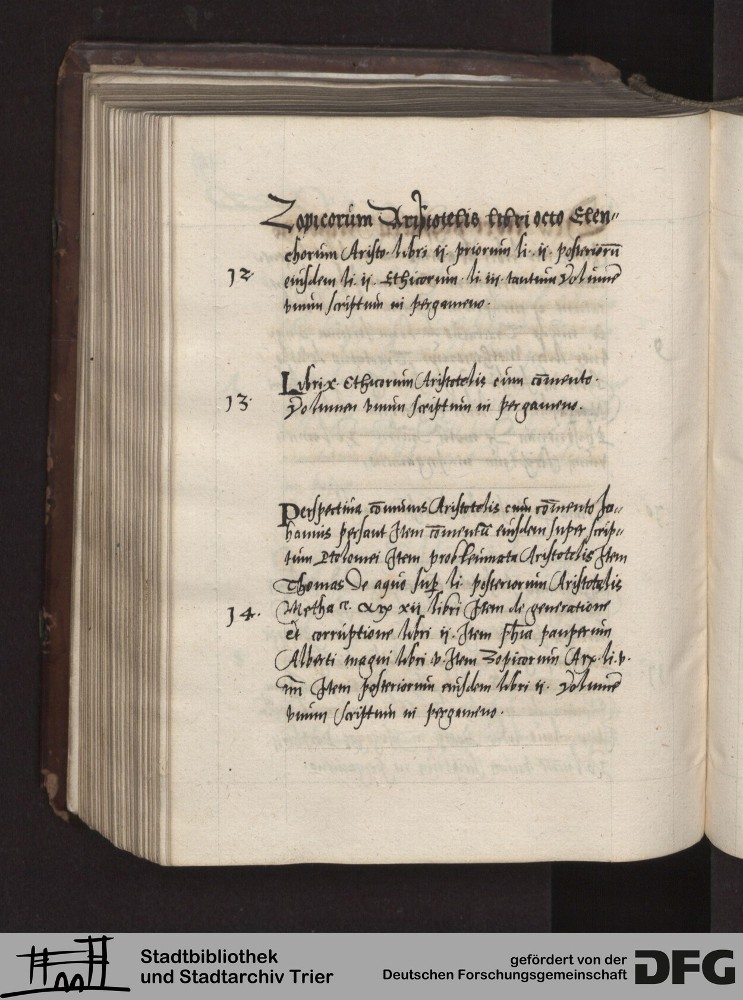 Topicorum Aristotelis libri octo Elen„
chorum Aristo. libri ij priorum li. ij. posteriorū
12 eiusdem li ij. Ethicorum li iij tantum Volumē
vnum scriptum in pergameno.
Libri x Ethicorum Aristotelis cum cōmento.
13. Volumen vnum scriptum in pergameno.
Perspectiua cōmunis Aristotelis cum cōmento Jo„
hannis Item cōmentū eiusdem super scrip„
tum Ptolomei Item probleumata Aristotelis Item
Thomas de aquo sup li posteriorum Aristotelis
14. Metha xij libri Item de generatione
et corruptione libri ij. Item phīa pauperum
Alberti magni libri v. Item Topicorum Arx. li. v.
Item posteriorum eiusdem libri ij. Volumē
vnum scriptum in pergameno.
Stadtbibliothek
und Stadtarchiv Trier
gefördert von der
Deutschen Forschungsgemeinschaft
DFG